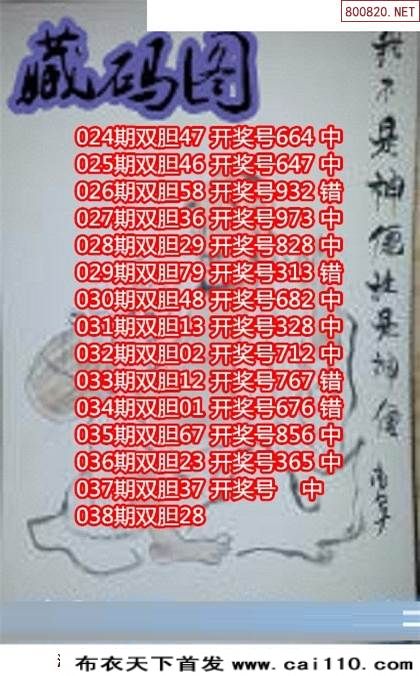 800820.NET
藏码图
024期双胆47 开奖号664 中
025期双胆46 开奖号647 中
026期双胆58 开奖号932 错
027期双胆36 开奖号973 中
028期双胆29 开奖号828 中
029期双胆79 开奖号313 错
030期双胆48 开奖号682 中
031期双胆13 开奖号328 中
032期双胆02 开奖号712 中
033期双胆12 开奖号767 错
034期双胆01 开奖号676 错
035期双胆67 开奖号856 中
036期双胆23 开奖号365 中
037期双胆37 开奖号 中
038期双胆28
我不是神便让是神便
布衣天下首发 www.cai110.com